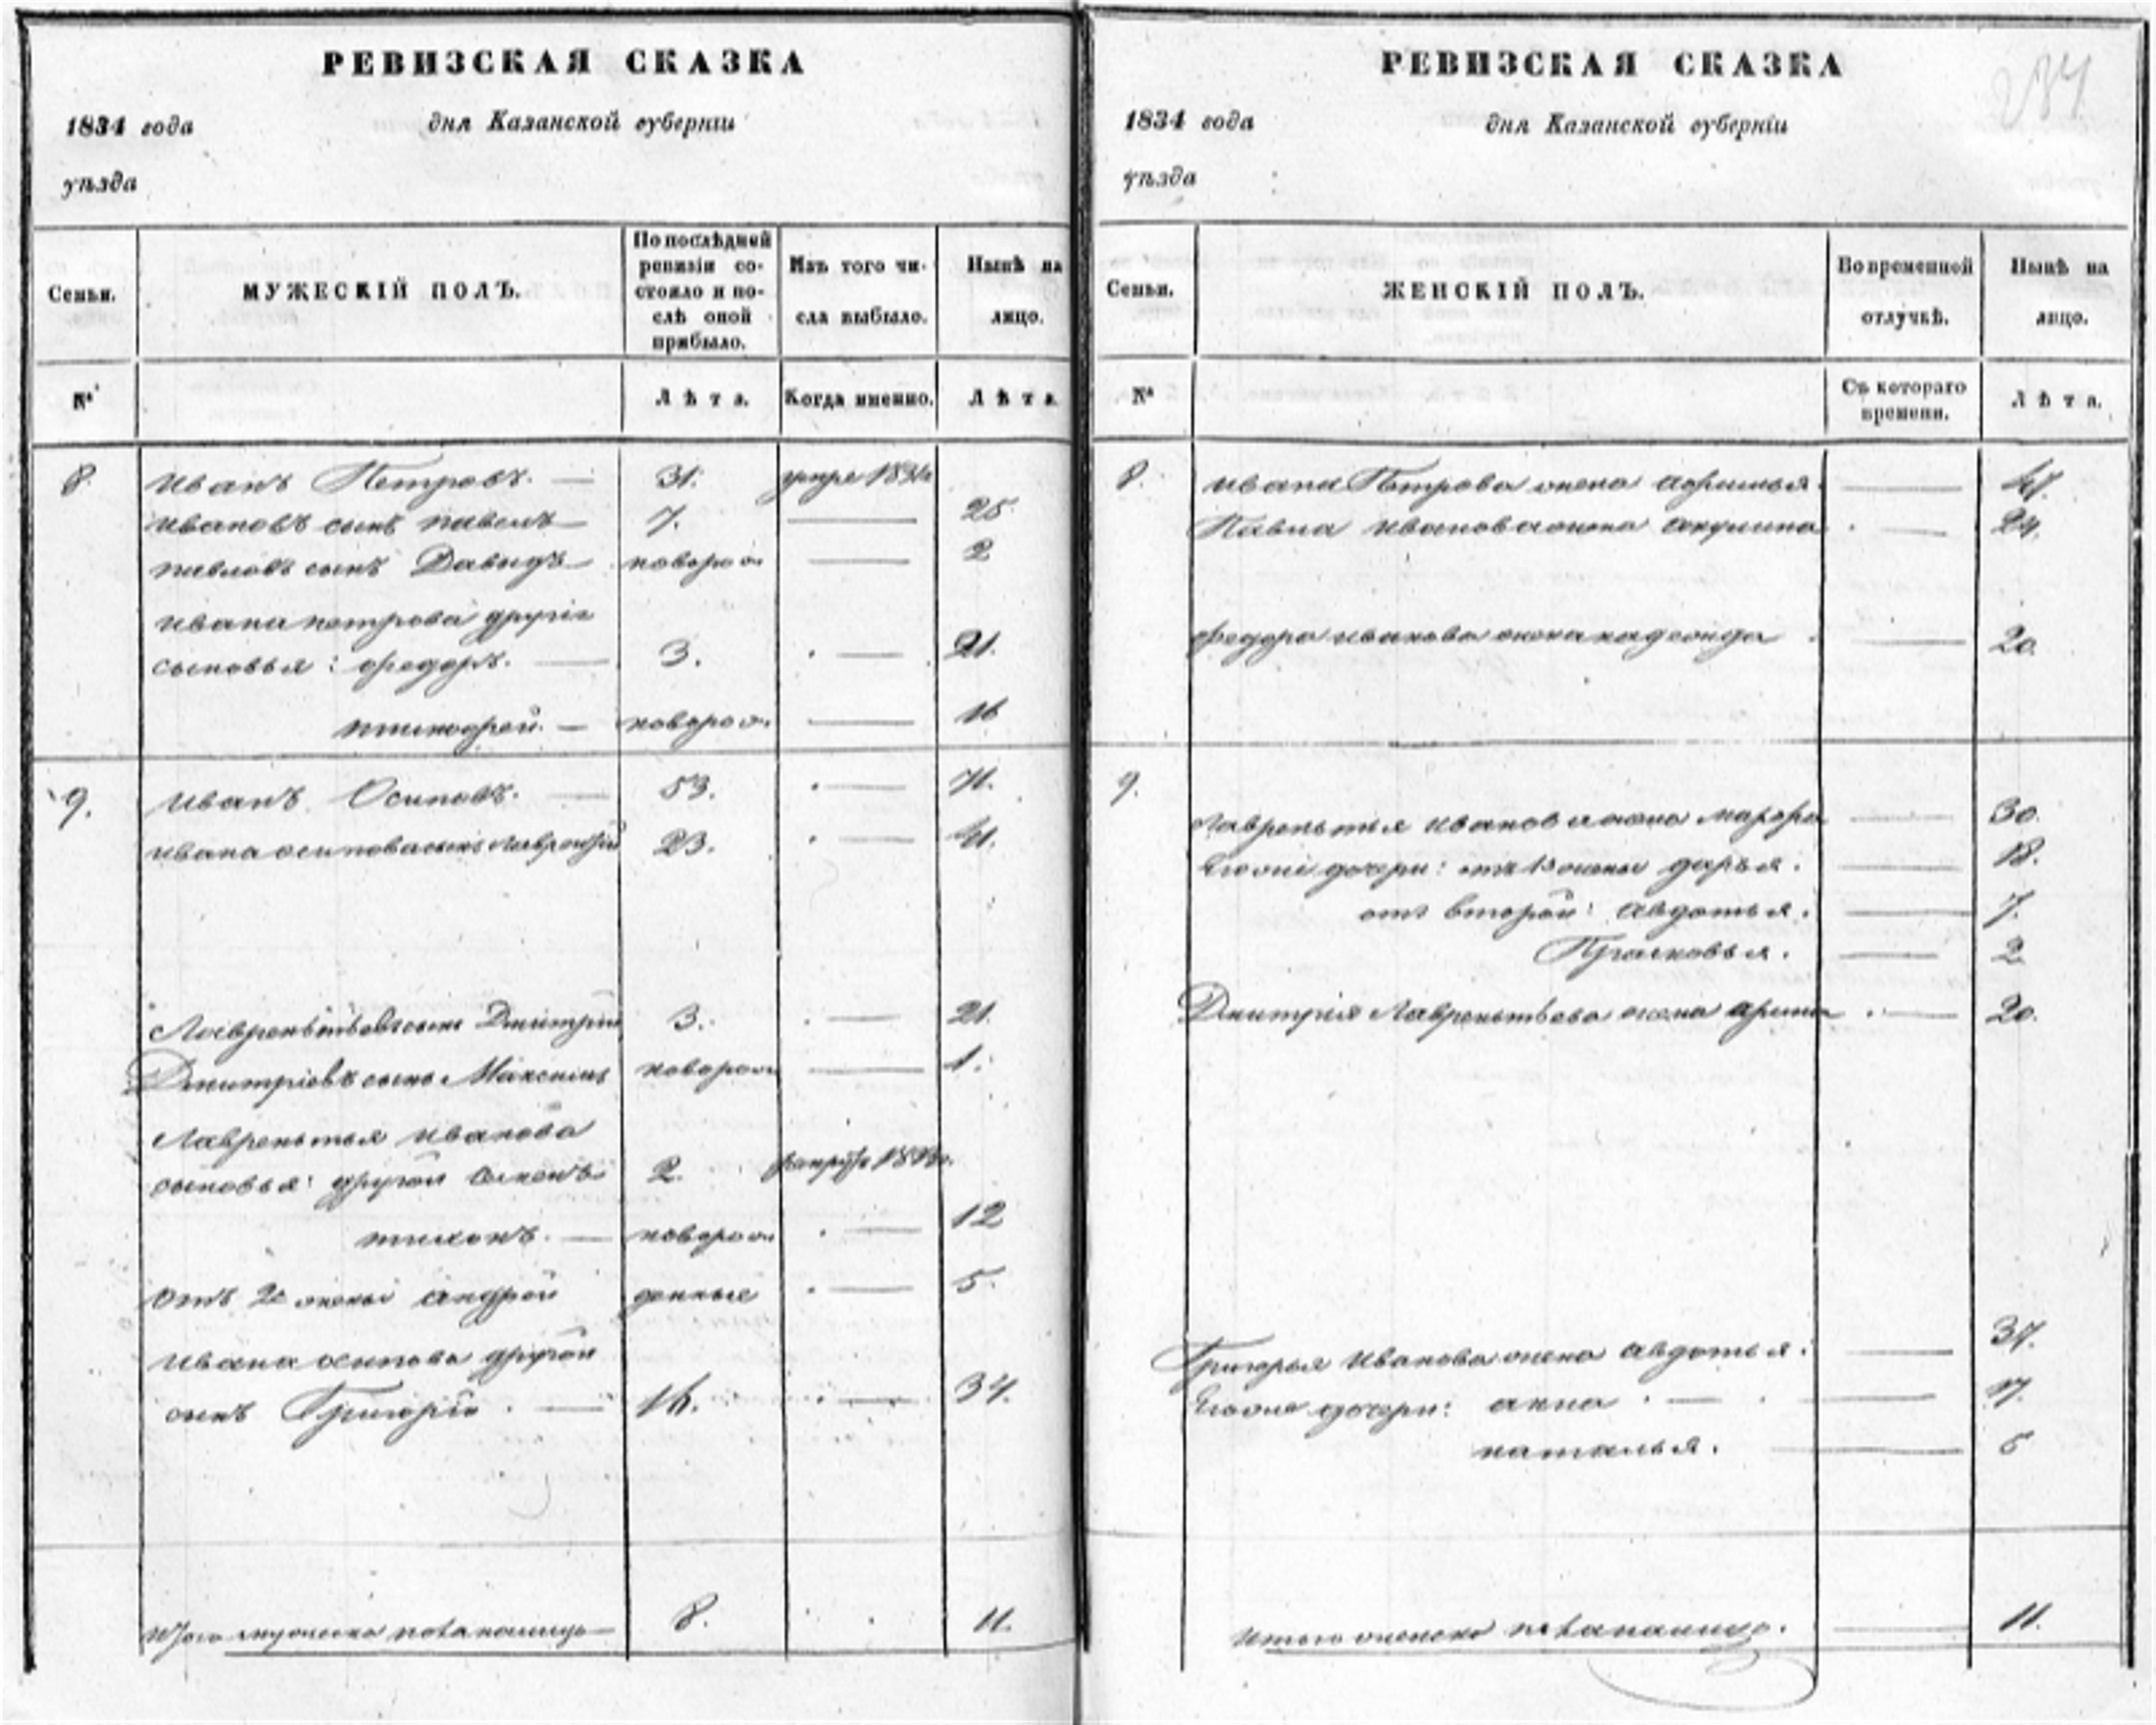 РЕВИЗСКАЯ СКАЗКА
1834 года дня Казанской губернiи
уѣзда
Семьи. МУЖЕСКIЙ ПОЛЪ. По послѣдней ревизiи состояло и послѣ оной прибыло. Изъ того числа выбыло. Нынѣ на лицо.
№ Лѣта. Когда именно. Лѣта
8 Иванъ Петровъ. — 31. 1834
Ивановъ сынъ Павелъ — 7. — 25
Павловъ сынъ Давидъ — новорож — 2
Ивана Петрова другiе
сыновья: Федоръ. — 3. — 21.
Тимофей. — новорож. — 16
9. Иванъ Осиповъ. — 53. — 71.
Ивана Осипова сынъ Лаврентiй 23. — 41.
Лаврентьевъ сынъ Дмитрiй 3. — 21.
Дмитрiевъ сынъ Максимъ новорож — 1.
Лаврентья Иванова
сыновья: другой Семенъ 2.
тихонъ. — новорож — 12
отъ 2й жены андрей — 5.
Ивана осипова другой
сынъ Григорiй — 16. — 34.
Итого мужеска пола налицо — 8. 11.
РЕВИЗСКАЯ СКАЗКА 284
1834 года дня Казанской губернiи
уѣзда
Семьи. ЖЕНСКIЙ ПОЛЪ. Во временной отлучкѣ. Нынѣ на лицо.
№ Съ котораго времени. Лѣта.
8. Ивана Петрова жена — 47.
Павла Иванова жена акулина — 24.
Федора Иванова жена надежда — 20.
9.
Лаврентья Иванова жена марфа — 30.
Его же дочери: отъ 1й жены дарья. — 18.
отъ второй: авдотья. — 7.
Прасковья. — 2
Дмитрiя Лаврентьева жена арина — 20.
Григорья Иванова жена авдотья. — 37.
Его же дочери: анна — 17.
наталья. —
Итого женска пола налицо. — 11.